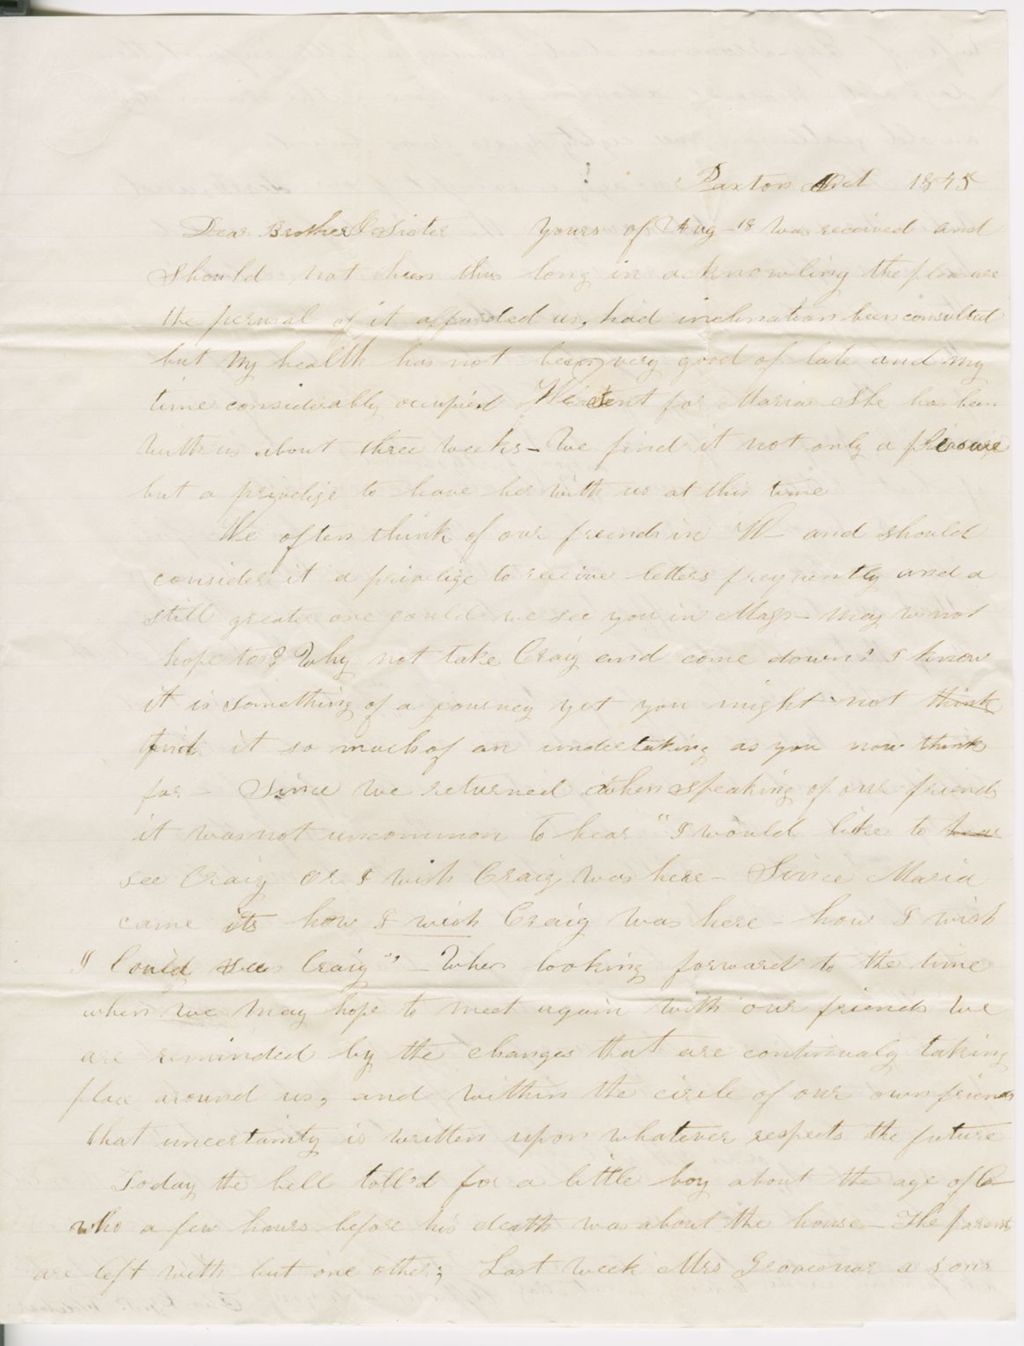 Paxton Oct 1848
Dear Brother & Sister Yours of Aug 18 was received and
should not been thus long in acknowling the pleasure
the perusal of it afforded us, had inclination been consulted
but my health has not been very good of late and my
time considerably occupied We sent for Maria She has been
with us about three weeks - We find it not only a pleasure
but a privelige to have her with us at this time
We often think of our friends in W- and should
consider it a privelige to receive letters frequently and a
still greater one could we see you in Mass - may we not
hope to? Why not take Craig and come down? I know
it is something of a journey yet you might not think
find it so much of an undertaking as you now think
for - Since we returned when speaking of our friends
it was not uncommon to hear "I would like to hear
see Craig or I wish Craig was here - Since Maria
came its how I wish Craig was here - how I wish
"I could see Craig" - When looking forward to the time
when we may hope to meet again with our friends we
are reminded by the changes that are continualy taking
place around us, and within the circle of our own friends
that uncertainty is written upon whatever respects the future
Today the bell toll'd for a little boy about the age of C-
who a few hours before his death was about the house - The parents
are left with but one other; Last week Mrs a sons